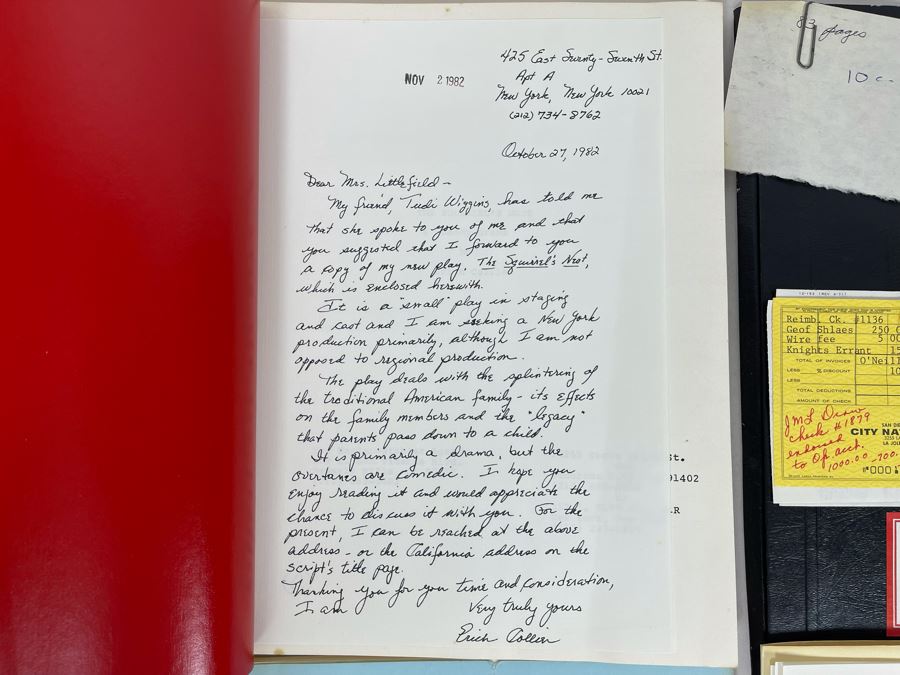 425 East Seventy-Seventh St.
Apt A
New York, New York 10021
(212) 734-8762
NOV 2 1982
October 27, 1982
Dear Mrs. Littlefield -
My friend, Tudi Wiggins, has told me
that she spoke to you of me and that
you suggested that I forward to you
a copy of my new play, The Squirrel's Nest,
which is enclosed herewith.
It is a "small" play in staging
and cast and I am seeking a New York
production primarily, although I am not
opposed to regional production.
The play deals with the splintering of
the traditional American family - its effects
on the family members and the "legacy"
that parents pass down to a child.
It is primarily a drama, but the
overtones are comedic. I hope you
enjoy reading it and would appreciate the
chance to discuss it with you. For the
present, I can be reached at the above
address - or the California address on the
script's title page.
Thanking you for your time and consideration,
I am
Very truly yours
Erich Collier
st.
91402
R
83 pages
10 c-
Reimb. Ck. #1136
Geof Shlaes 250 0
Wire fee 5 00
Knights Errant 15
TOTAL OF INVOICES O'Neill
LESS % DISCOUNT 10
LESS
TOTAL DEDUCTIONS
AMOUNT OF CHECK
check #1879
endorsed
to Op. acct.
1000.00 -700.
SAN DIE
CITY NA
LA JOLL